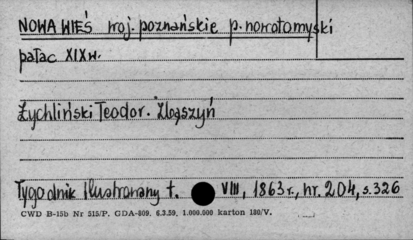 NOWA WIEŚ woj. poznańskie p. nowotomyski
pałac XIXw.
Żychliński Teodor. Zbąszyń
Tygodnik Ilustrowany t. VIII, 1863 r., nr. 204, s. 326
CWD B-15b Nr 515/P. GDA-809. 6.3.59. 1.000.000 karton 180/V.